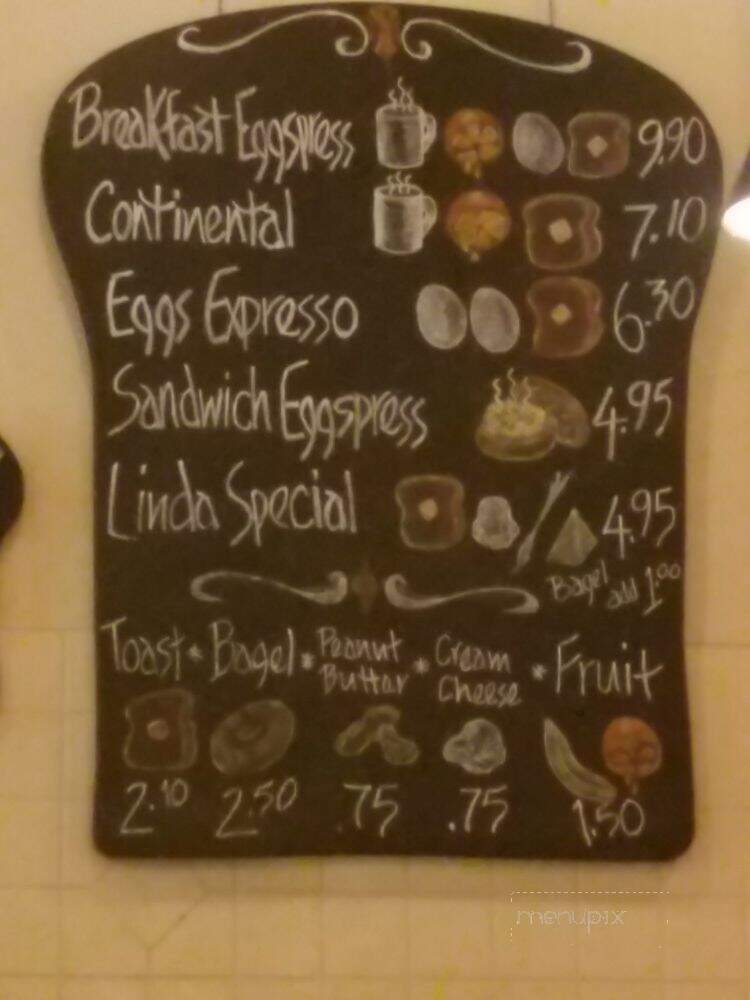 Breakfast Eggspress 9.90
Continental 7.10
Eggs Expresso 6.30
Sandwich Eggspress 4.95
Linda Special 4.95
Bagel add 1.00
Toast * Bagel * Peanut Butter * Cream Cheese * Fruit
2.10 2.50 .75 .75 1.50
menupix